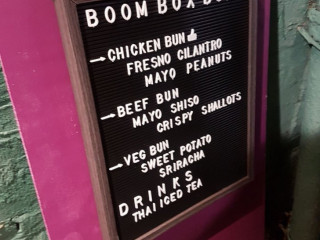 BOOM BOX
CHICKEN BUN
FRESNO CILANTRO
MAYO PEANUTS
BEEF BUN
MAYO SHISO
CRISPY SHALLOTS
VEG BUN
SWEET POTATO
SRIRACHA
DRINKS
THAI ICED TEA